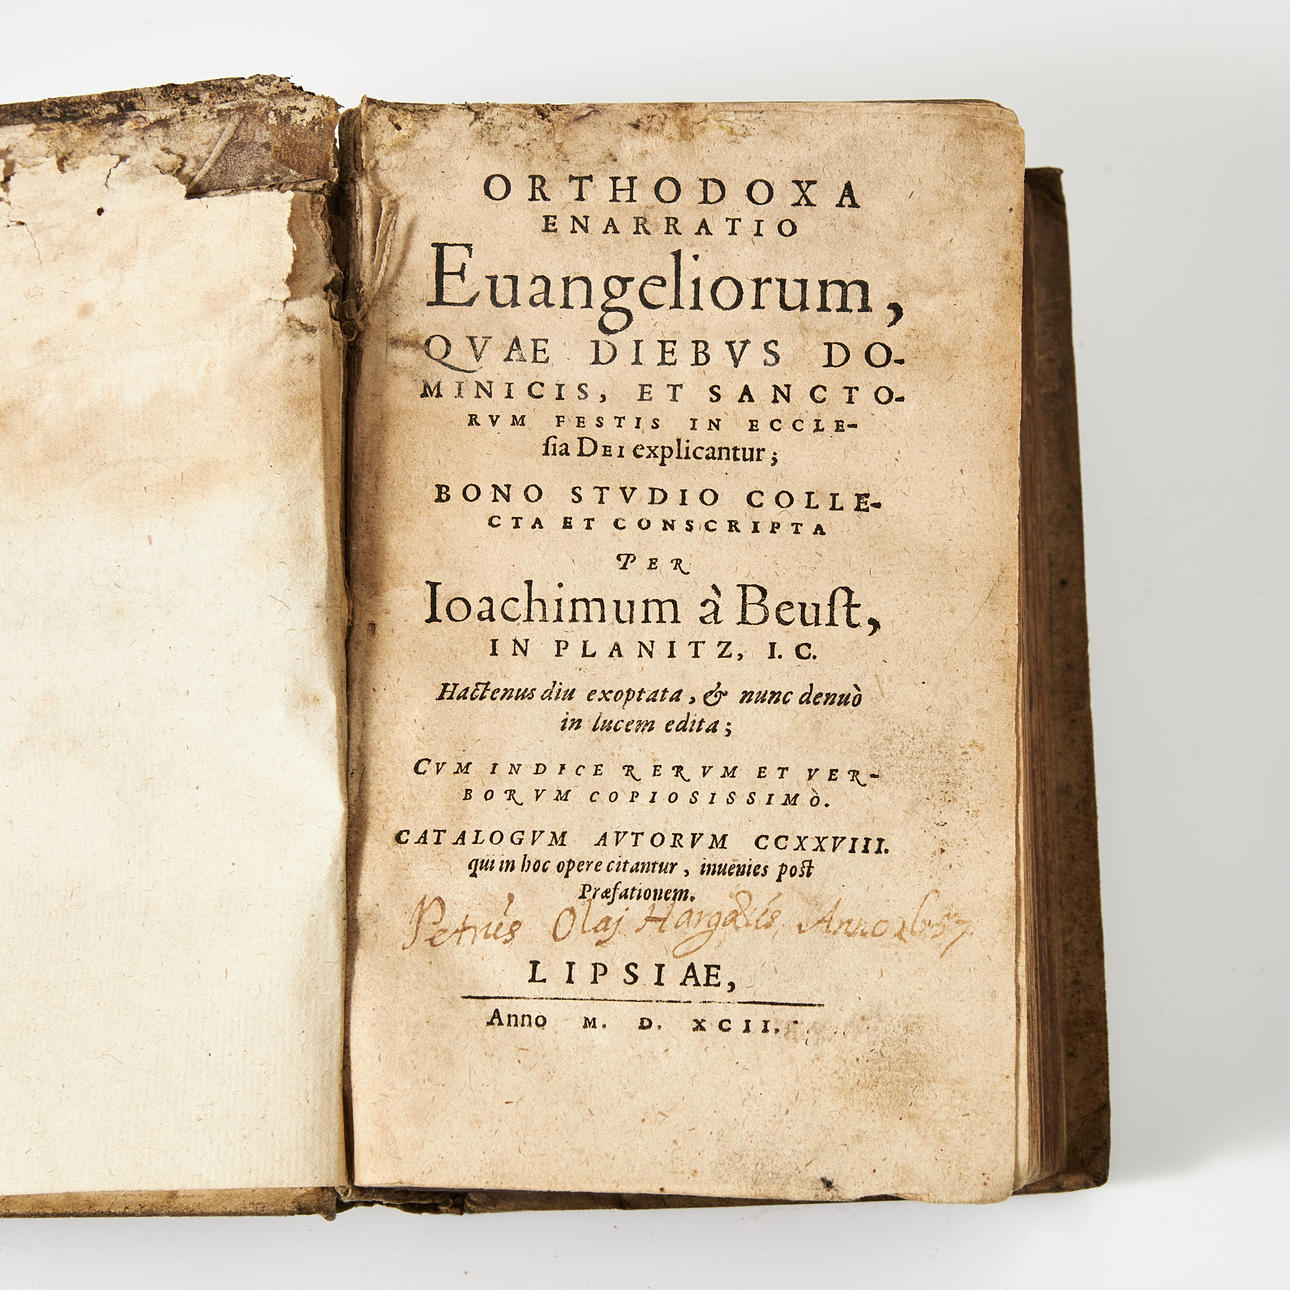 ORTHODOXA
ENARRATIO
Euangeliorum,
QVAE DIEBVS DO-
MINICIS, ET SANCTO-
RVM FESTIS IN ECCLE-
ſia DEI explicantur;
BONO STVDIO COLLE-
CTA ET CONSCRIPTA
PER
Ioachimum à Beuſt,
IN PLANITZ, I. C.
Hactenus diu exoptata, & nunc denuò
in lucem edita;
CVM INDICE RERVM ET VER-
BORVM COPIOSISSIMÒ.
CATALOGVM AVTORVM CCXXVIII.
qui in hoc opere citantur, inuenies poſt
Præfationem.
Petrus Olaj Anno 1657
LIPSIAE,
Anno M. D. XCII.